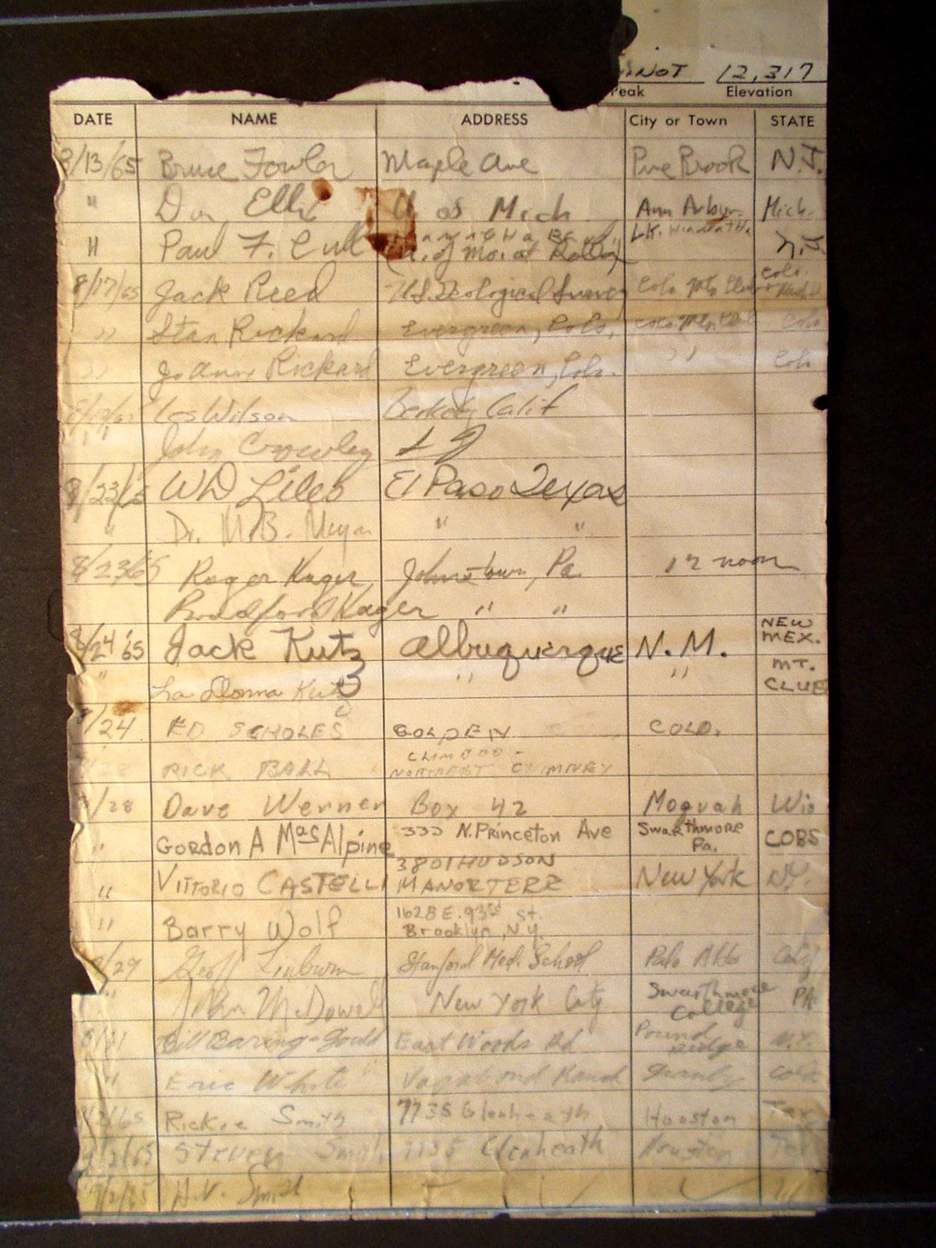 12,317
Peak Elevation
DATE NAME ADDRESS City or Town STATE
/13/65 Bruce Fowler Maple Ave Pine Brook N.J.
" Don U of Mich. Ann Arbor Mich.
" Paul F. N.J.
8/17/65 Jack Reed U.S. Geological Survey Colo
" Stan Rickard Evergreen, Colo. Colo
" Joanne Rickard Evergreen, Colo. " Colo
Les Wilson Berkeley Calif
" John Crowley
8/23/65 WD Liles El Paso Texas
" Dr. M.B. " "
8/23/65 Roger Kager, Johnstown, Pa 12 noon
Bradford Kager " "
8/24 '65 Jack Kutz Albuquerque N.M. NEW MEX.
" La Donna Kutz " " MT. CLUB
/24 ED SCHOLES GOLDEN COLO.
RICK BALL CLIMBED - NORTHEAST CHIMNEY
/28 Dave Werner Box 42 Moquah Wis
" Gordon A MacAlpine 333 N. Princeton Ave Swarthmore Pa. COBS
" VITTORIO CASTELLI 3801 HUDSON MANOR TERR New York N.Y.
" Barry Wolf 1628 E. 93rd St. Brooklyn, N.Y.
/29 Geoff Stanford Med. School Palo Alto Calif
" John McDowell New York City Swarthmore College PA
8/31 Bill Baring-Gould East Woods Rd Pound Ridge N.Y.
" Eric White Vagabond Ranch Granby Colo
/65 Rickie Smith 7735 Glenheath Houston Tex
/2/65 Steven Smith 7735 Glenheath Houston Tex
/2/65 H.V. Smith